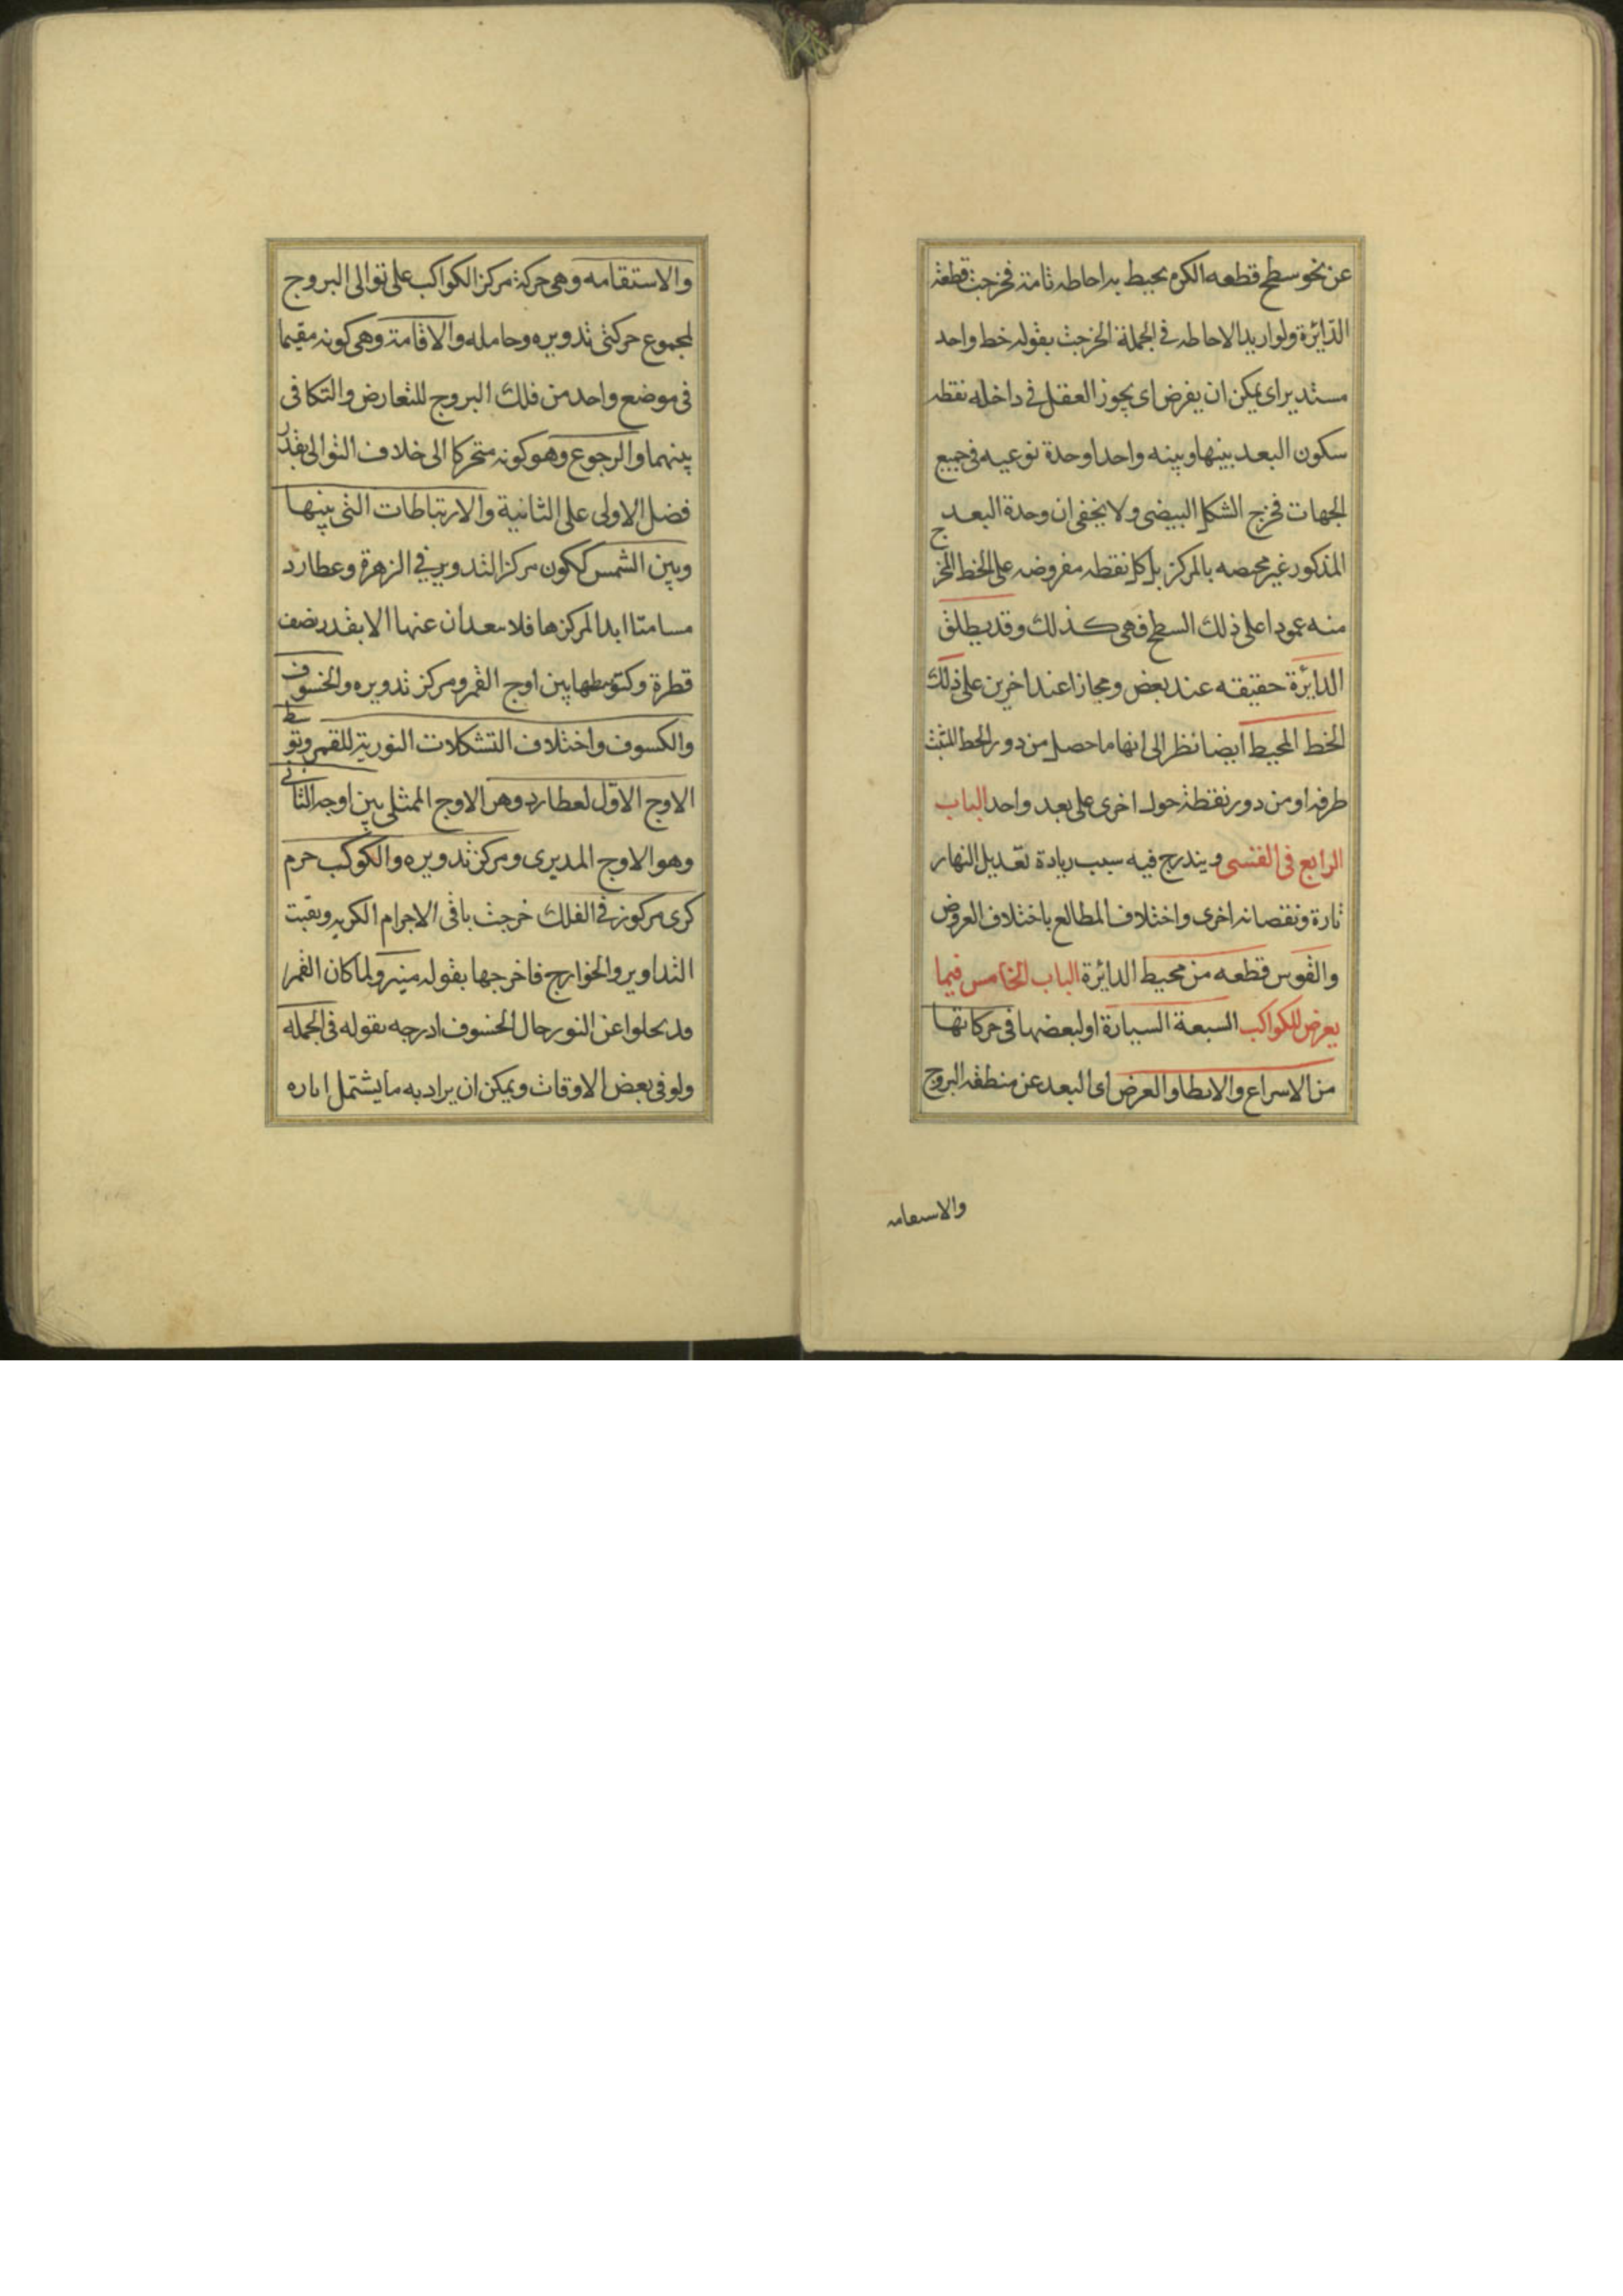 عن نحو سطح قطعه الكره يحيط به احاطه تامة فخرجت قطعة
الدّايرة ولو اريد الاحاطه في الجملة لخرجت بقوله خط واحد
مستدير اى يمكن ان يفرض اى يجوز العقل فى داخله نقطه
سكون البعد بينها وبينه واحدا وحدة نوعيه فى جميع
الجهات فخرج الشكل البيضى ولا يخفى ان وحدة البعد
المذكور غير محصه بالمركز بل كل نقطه مفروضه على الخط المخرج
منه عمودا على ذلك السطح فهى كذلك وقد يطلق
الدايرة حقيقه عند بعض ومجازا عند اخرين على ذلك
الخط المحيط ايضا نظرا الى انها ما حصل من دور الخط المثبت
طرفه او من دور نقطة حول اخرى على بعد واحد الباب
الرابع فى القسى ويندرج فيه سبب زيادة تعديل النهار
تارة ونقصانه اخرى واختلاف المطالع باختلاف العروض
والقوس قطعه من محيط الدائرة الباب الخامس فيما
يعرض للكواكب السبعة السيارة او لبعضها فى حركاتها
من الاسراع والابطا والعرض اى البعد عن منطقه البروج
والاسعامه
والاستقامه وهى حركة مركز الكواكب على توالى البروج
لمجموع حركتى تدويره وحامله والاقامة وهى كونه مقيما
فى موضع واحد من فلك البروج للتعارض والتكافى
بينهما والرجوع وهو كونه متحركا الى خلاف التوالى بقدر
فضل الاولى على الثانية والارتباطات التى بينها
وبين الشمس ككون مركز التدوير في الزهرة وعطارد
مسامتا ابدا لمركزها فلا سعدان عنها الا بقدر نصف
قطرة وكتوسطها بين اوج القمر ومركز تدويره والخسوف
والكسوف واختلاف التشكلات النورية للقمر وتوسط
الاوج الاوّل لعطارد وهو الاوج الممثلى بين اوجه الثانى
وهو الاوج المديرى ومركز تدويره والكوكب جرم
كرى مركوز فى الفلك خرجت باقى الاجرام الكريه وبقيت
التداوير والخوارج فاخرجها بقوله منير ولما كان القمر
قد يخلوا عن النور حال الخسوف ادرجه بقوله فى الجمله
ولو فى بعض الاوقات ويمكن ان يراد به ما يشتمل اناره